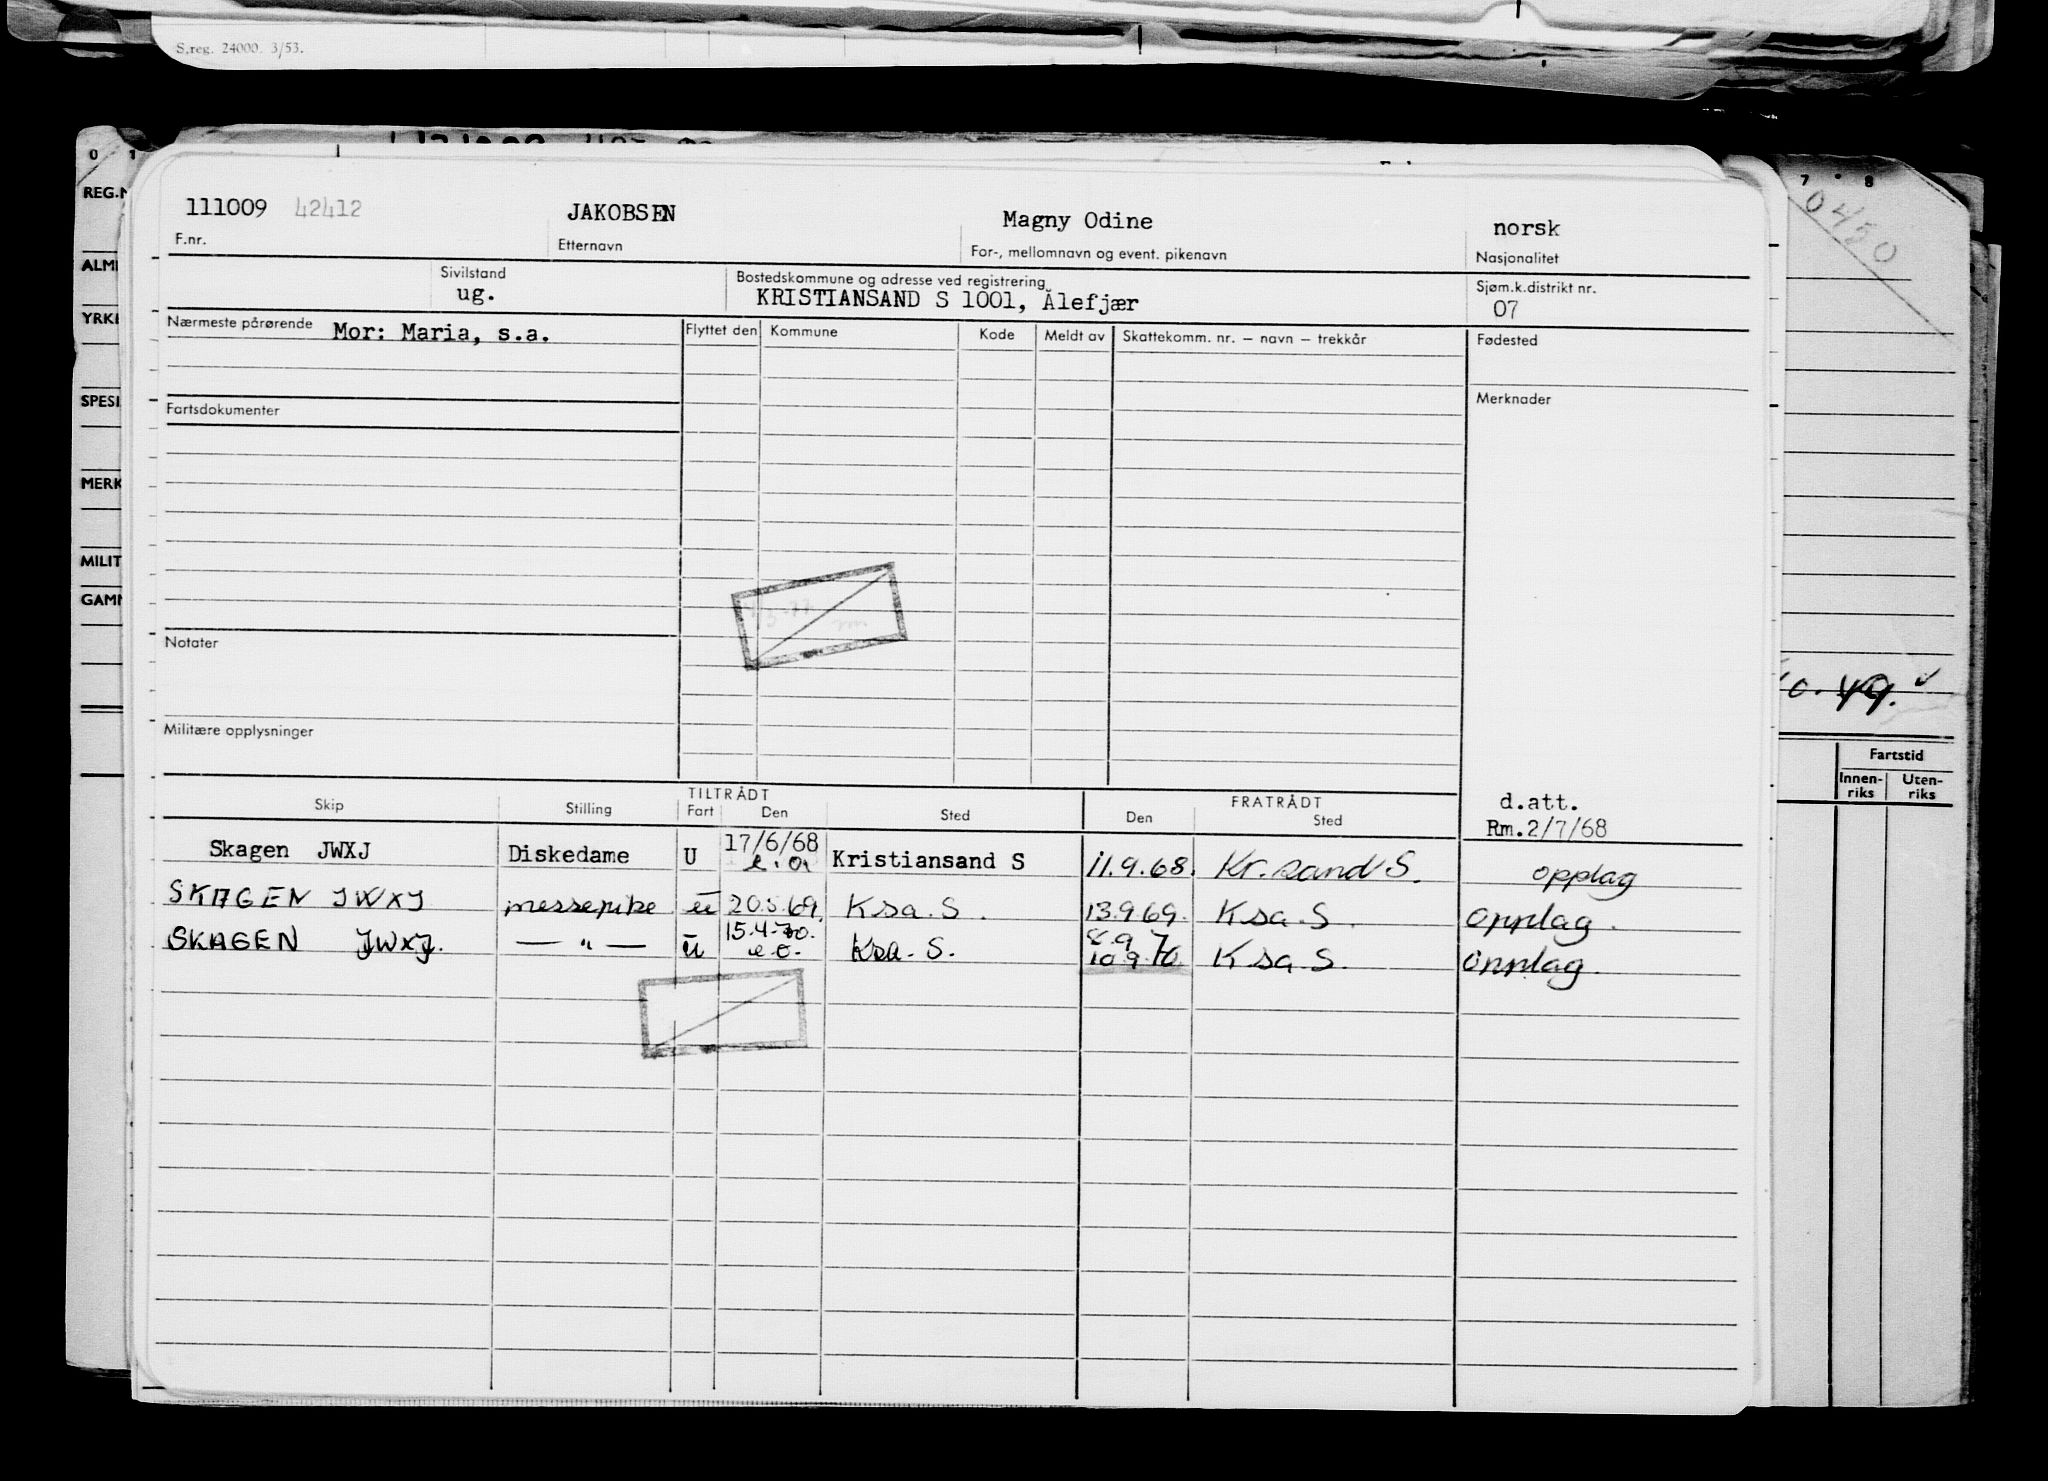 S.reg. 24000. 3/53.
0 1
7 8
REG.N
0450
111009 42412 JAKOBSEN Magny Odine norsk
F.nr. Etternavn For-, mellomnavn og event. pikenavn Nasjonalitet
ALM
Sivilstand Bostedskommune og adresse ved registrering Sjøm.k.distrikt nr.
ug. KRISTIANSAND S 1001, Ålefjær 07
YRKE
Nærmeste pårørende Mor: Maria, s.a. Flyttet den Kommune Kode Meldt av Skattekomm. nr. – navn – trekkår Fødested
SPESI
Fartsdokumenter Merknader
MERK
MILIT
GAMM
Notater
10.49.
Militære opplysninger
Fartstid
Innen-riks Uten-riks
TILTRÅDT FRATRÅDT d.att.
Skip Stilling Fart Den Sted Den Sted Rm.2/7/68
Skagen JWXJ Diskedame U 17/6/68 e.o. Kristiansand S 11.9.68. Kr.sand S. opplag
SKAGEN JWXJ messepike u 20.5.69. Ksa. S. 13.9.69. Ksa. S. opplag.
SKAGEN JWXJ. — " — u 15.4.70. e.o. Ksa. S. 8.9 10.9.70. Ksa. S. opplag.